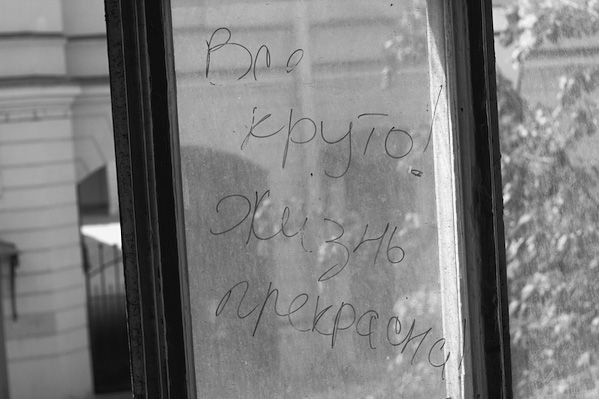 Все
круто!
жизнь
прекрасна!